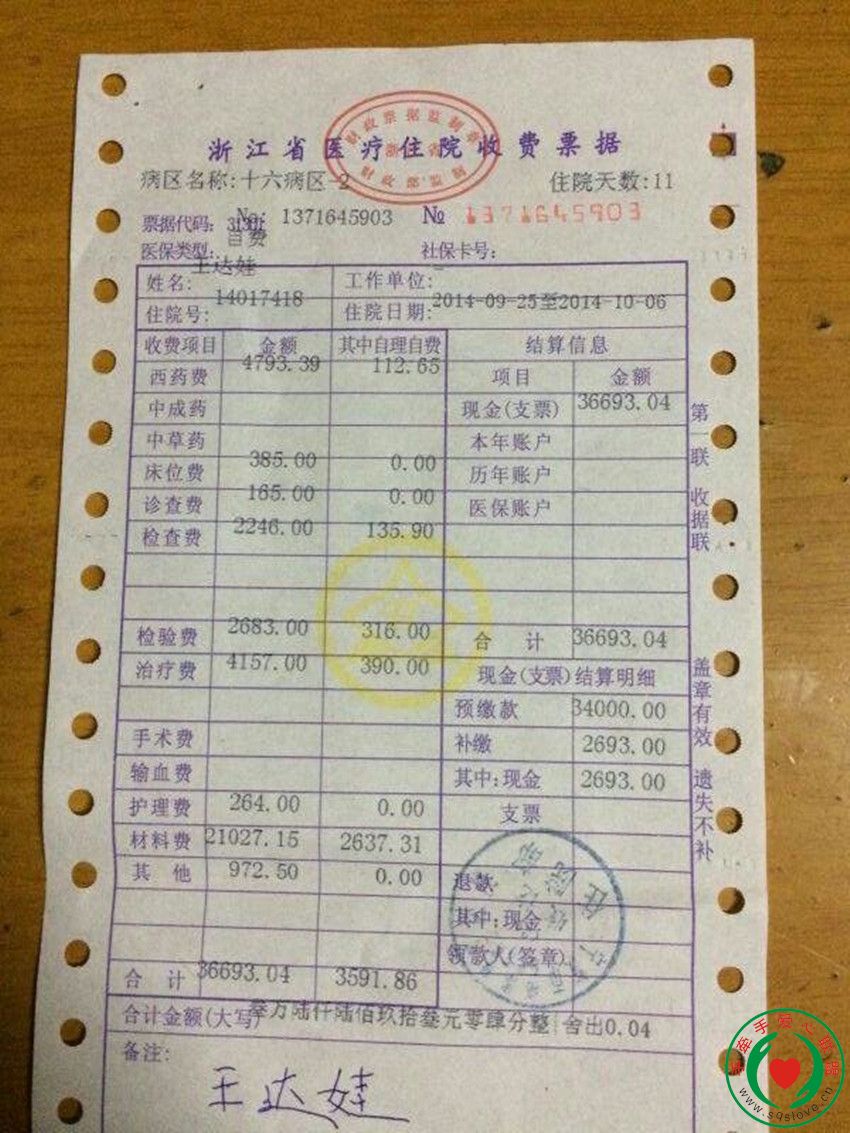 财政票据监制章
浙江省
财政部监制
浙江省医疗住院收费票据
病区名称:十六病区-2 住院天数:11
票据代码: No: 1371645903 № 1371645903
医保类型: 自费 社保卡号:
姓名: 王达娃 工作单位: -
住院号: 14017418 住院日期: 2014-09-25至2014-10-06
收费项目 金额 其中自理自费 结算信息
西药费 4793.39 112.65 项目 金额
中成药 现金(支票) 36693.04
中草药 本年账户
床位费 385.00 0.00 历年账户
诊查费 165.00 0.00 医保账户
检查费 2246.00 135.90
检验费 2683.00 316.00 合计 36693.04
治疗费 4157.00 390.00 现金(支票)结算明细
预缴款 34000.00
手术费 补缴 2693.00
输血费 其中:现金 2693.00
护理费 264.00 0.00 支票
材料费 21027.15 2637.31
其他 972.50 0.00 退款
其中:现金
领款人(签章)
合计 36693.04 3591.86
合计金额(大写) 叁万陆仟陆佰玖拾叁元零肆分整 舍出0.04
备注:
王达娃
第一联 收据联
盖章有效 遗失不补
www.sqslove.cn